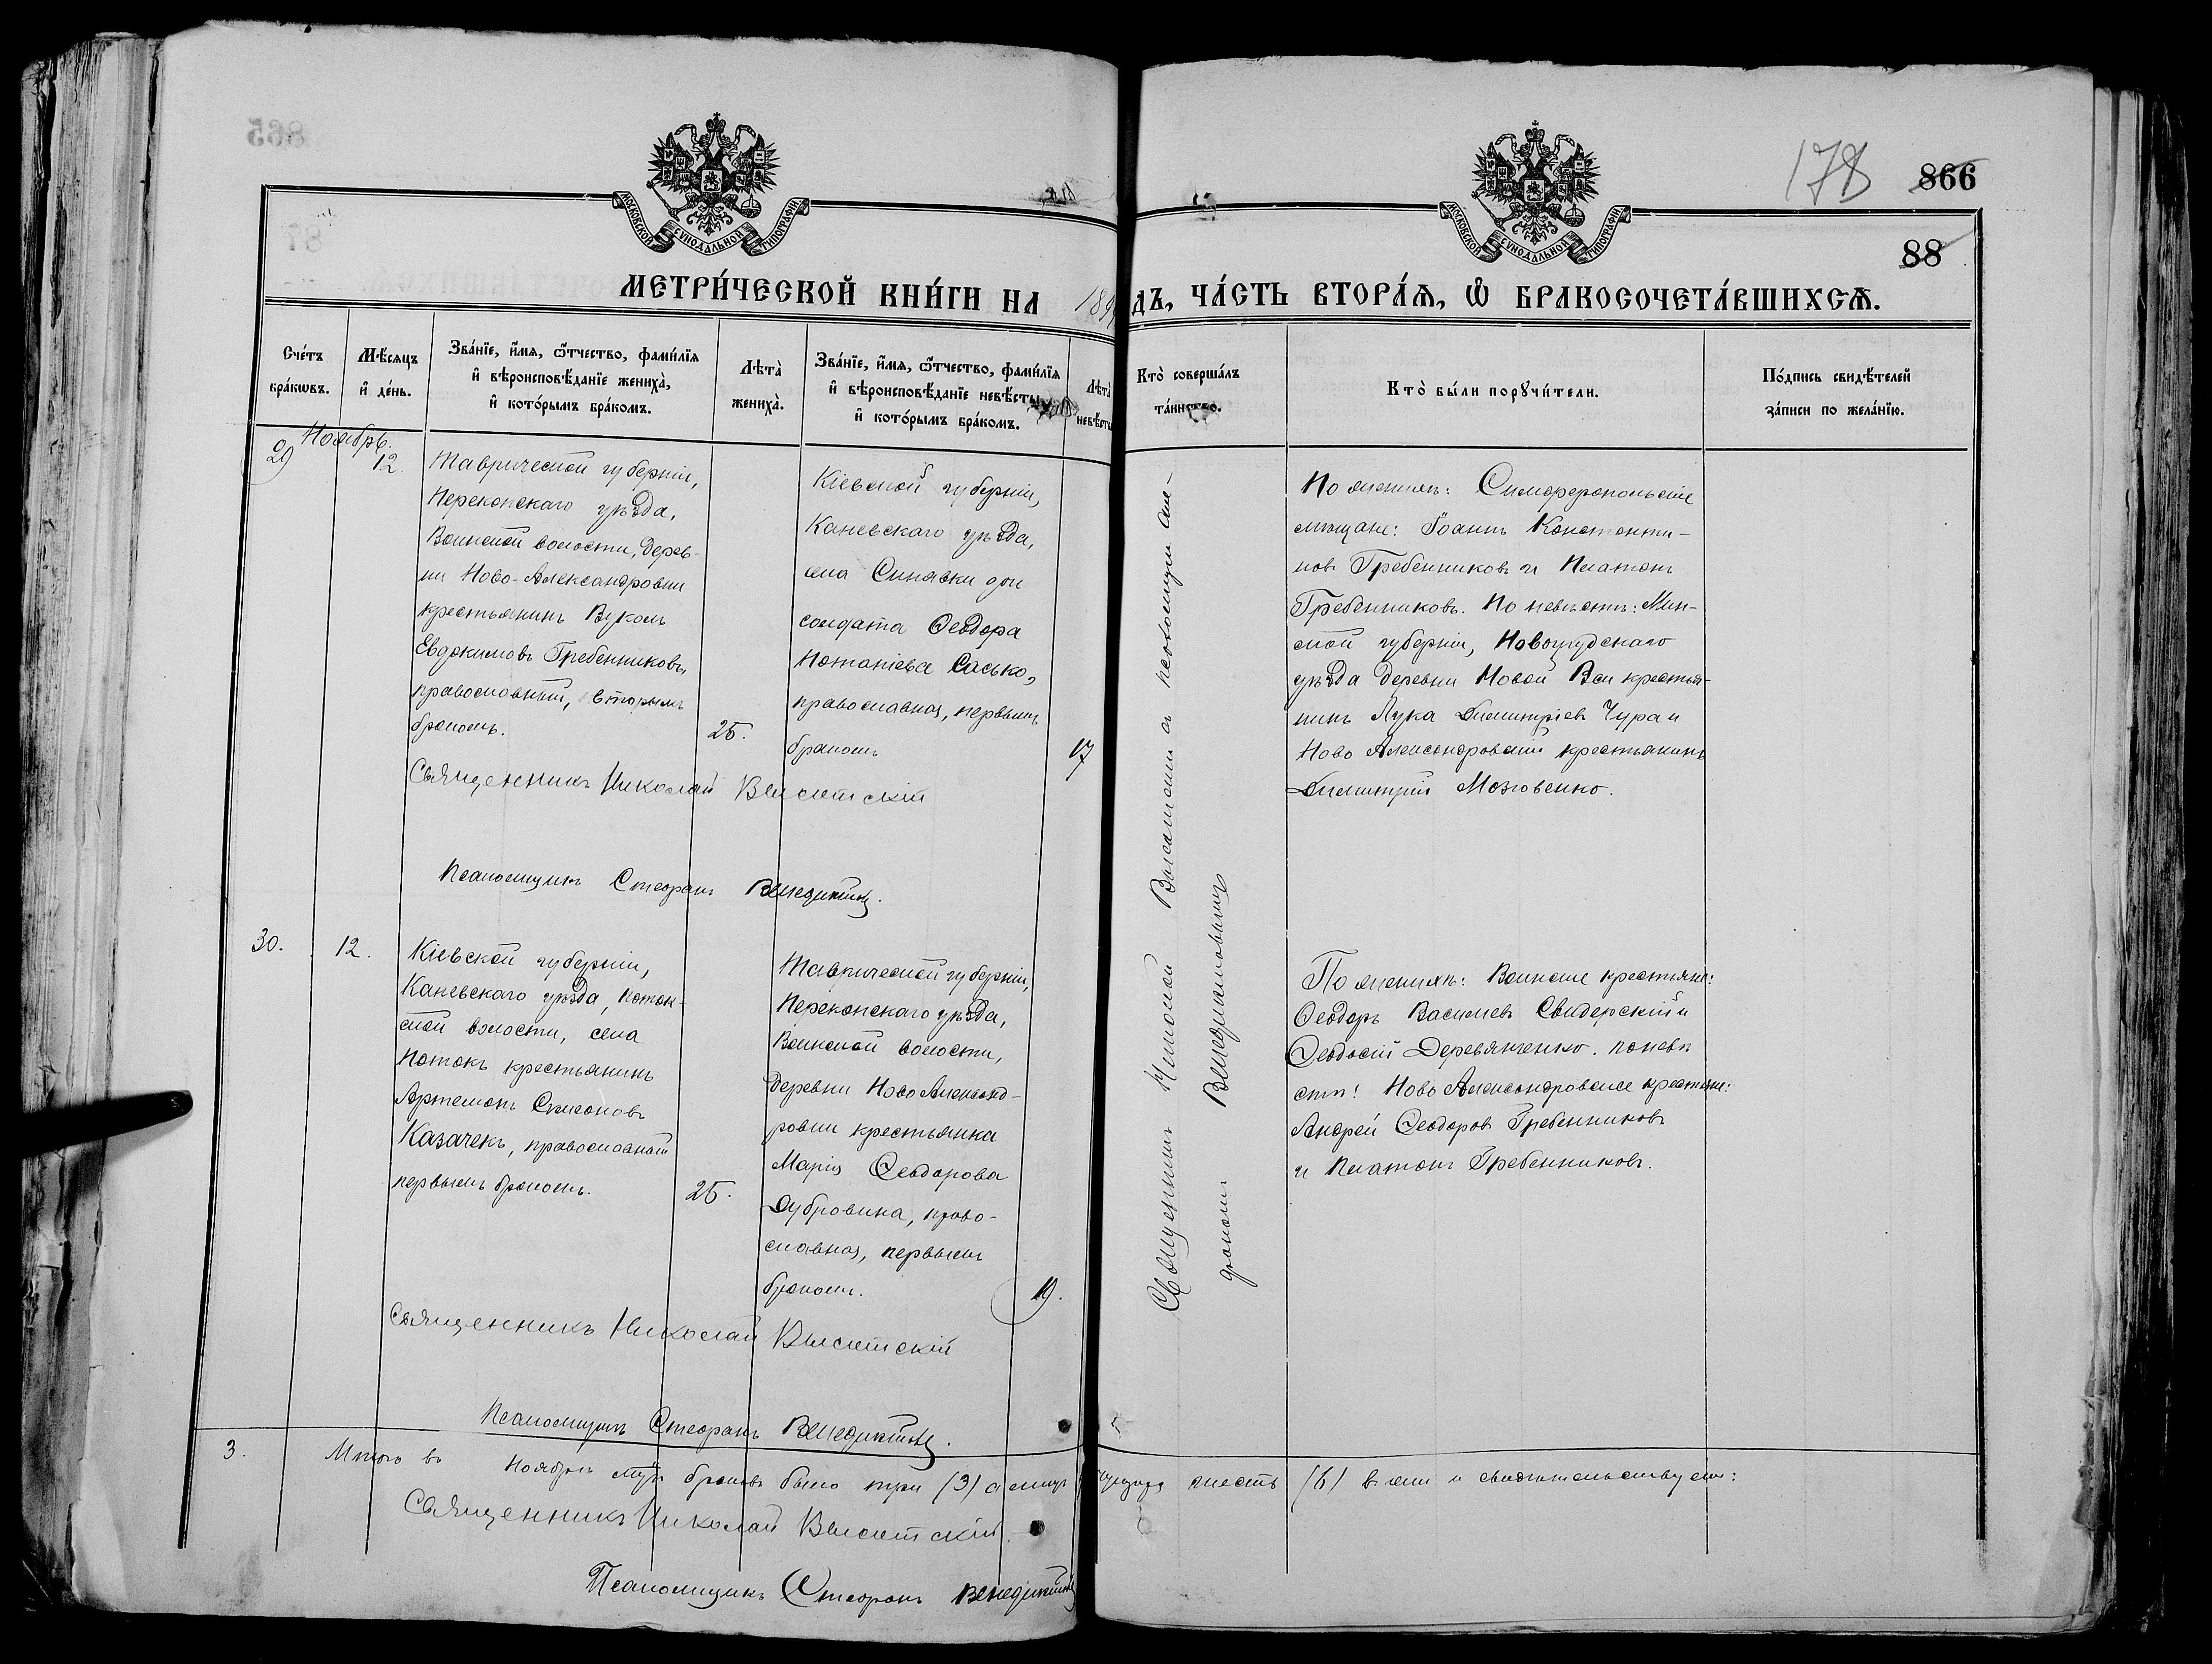 178 866
88
МОСКОВСКОЙ СѴНОДАЛЬНОЙ ТИПОГРАФІИ
МОСКОВСКОЙ СѴНОДАЛЬНОЙ ТИПОГРАФІИ
МЕТРИ́ЧЕСКОЙ КНИ́ГИ НА 189
ДЪ, ЧА́СТЬ ВТОРА́Я, Ѽ БРАКОСОЧЕТА́ВШИХСѦ.
Сче́тъ
бра́кѡвъ.
Мѣ́сяцъ
и҆ де́нь.
Зва́нїе, и҆́мя, ѻ҆́тчество, фами́лїя
и҆ вѣроисповѣ́данїе жениха̀,
и҆ кото́рымъ бра́комъ.
Лѣта̀
жениха̀.
Зва́нїе, и҆́мя, ѻ҆́тчество, фами́лїя
и҆ вѣроисповѣ́данїе невѣ́сты
и҆ кото́рымъ бра́комъ.
Лѣта̀
невѣ́сты
Кто̀ соверша́лъ
та́инство.
Кто̀ бы́ли порꙋчи́тели.
По́дпись свидѣ́телей
за́писи по жела́нїю.
Ноябрь.
29
12.
Таврической губерніи,
Перекопскаго уѣзда,
Воинской волости, дерев-
ни Ново-Александровки
крестьянинъ Вуколъ
Евдокимовъ Гребенниковъ,
православный, вторымъ
бракомъ.
25.
Кіевской губерніи,
Каневскаго уѣзда,
села Синявки дочь
солдата Ѳеодора
Потапіева Сасько,
православная, первымъ
бракомъ
17
Священникъ Николай
Псаломщикъ Стефанъ Венедиктовъ.
Священникъ Николай
съ псаломщикомъ Сте-
фаномъ
По женихѣ: Симферопольскіе
мѣщане: Іоаннъ Константи-
новъ Гребенниковъ и Платонъ
Гребенниковъ. По невѣстѣ: Мин-
ской губерніи,
уѣзда деревни Новой Вси крестья-
нинъ Лука Димитріевъ Чура и
Ново Александровскій крестьянинъ
Димитрій Мозговенко.
30.
12.
Кіевской губерніи,
Каневскаго уѣзда, Поток-
ской волости, села
Потокъ крестьянинъ
Артемонъ Симеоновъ
Казачекъ, православный
первымъ бракомъ.
25.
Таврической губерніи,
Перекопскаго уѣзда,
Воинской волости,
деревни Ново Александ-
ровки крестьянка
Марія Ѳеодорова
Дубровина, право-
славная, первымъ
бракомъ.
19.
По женихѣ: Воинскіе крестьяне:
Ѳеодоръ Василіевъ Свидерскій и
Ѳеодосій Деревянченко. По невѣ
стѣ: Ново Александровскіе крестьяне:
Андрей Ѳеодоровъ Гребенниковъ
и Платонъ Гребенниковъ.
Священникъ Николай
Псаломщикъ Стефанъ Венедиктовъ.
3.
Итого въ Ноябрѣ мцѣ браковъ было три (3) а шесть (6) въ чемъ и свидѣтельствуемъ:
Священникъ Николай
Псаломщикъ Стефанъ Венедиктовъ